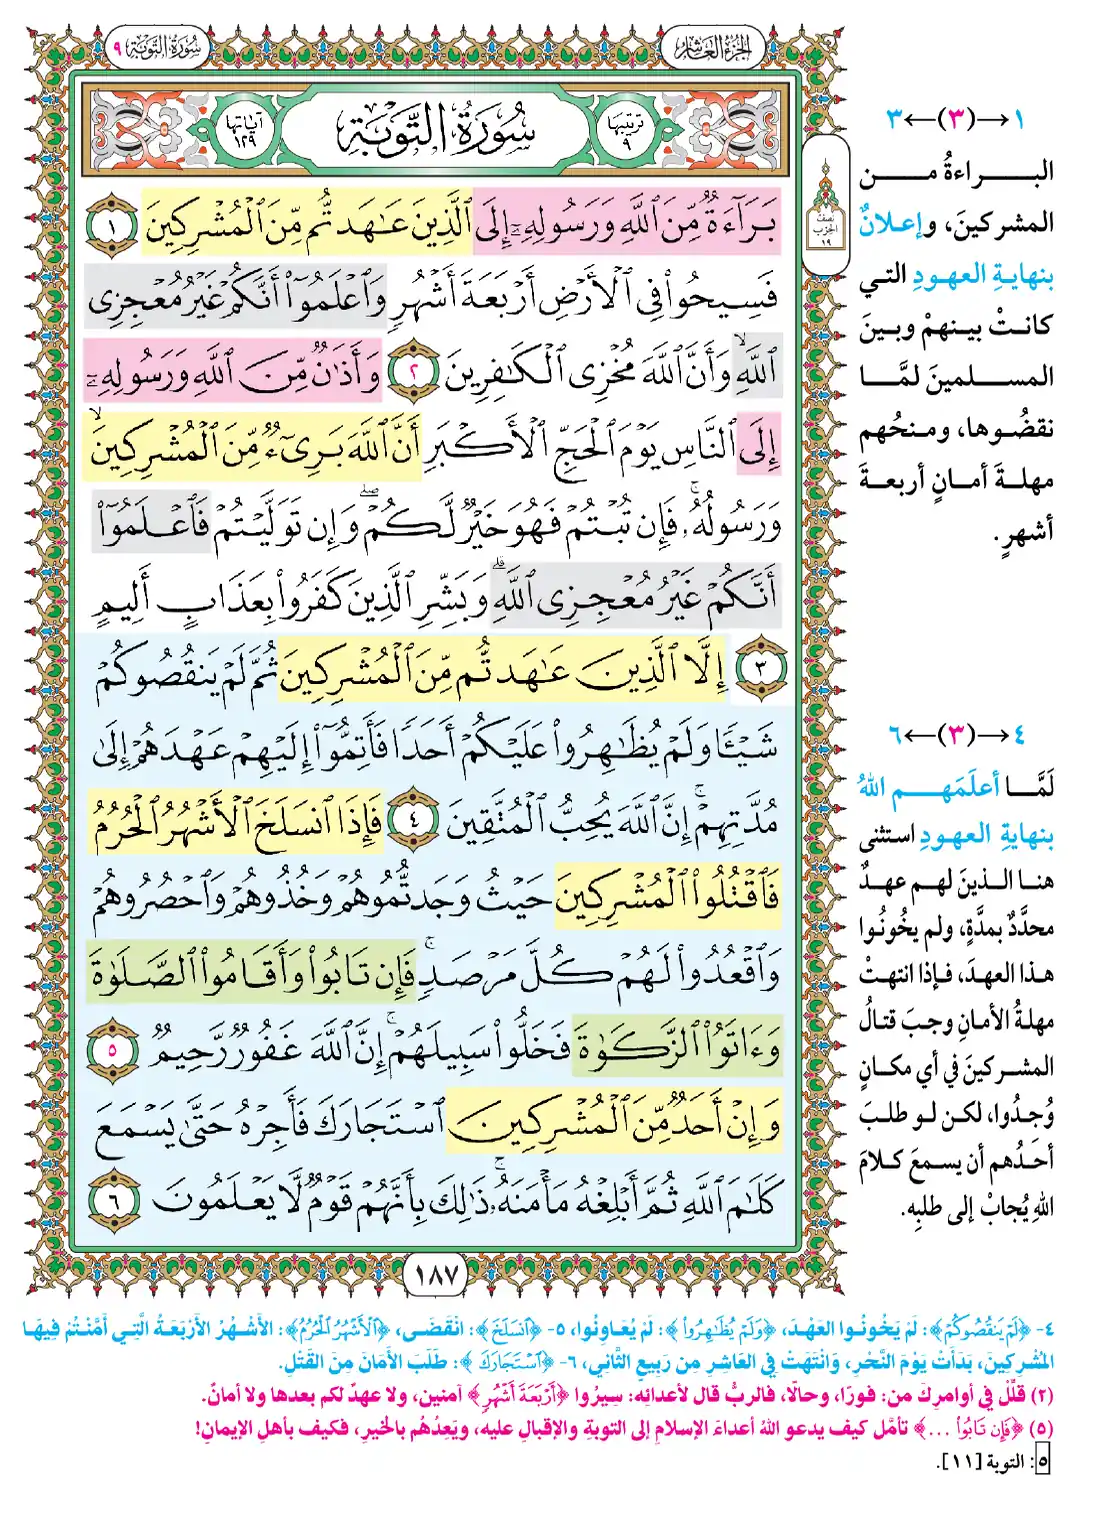 الجزء العاشر
سورة التوبة ٩
ترتيبها ٩
سُورَةُ التَّوْبَةِ
آياتها ١٢٩
بَرَآءَةٌ مِّنَ ٱللَّهِ وَرَسُولِهِۦٓ إِلَى ٱلَّذِينَ عَٰهَدتُّم مِّنَ ٱلْمُشْرِكِينَ ١
فَسِيحُوا۟ فِى ٱلْأَرْضِ أَرْبَعَةَ أَشْهُرٍ وَٱعْلَمُوٓا۟ أَنَّكُمْ غَيْرُ مُعْجِزِى
ٱللَّهِ ۙ وَأَنَّ ٱللَّهَ مُخْزِى ٱلْكَٰفِرِينَ ٢ وَأَذَٰنٌ مِّنَ ٱللَّهِ وَرَسُولِهِۦٓ
إِلَى ٱلنَّاسِ يَوْمَ ٱلْحَجِّ ٱلْأَكْبَرِ أَنَّ ٱللَّهَ بَرِىٓءٌ مِّنَ ٱلْمُشْرِكِينَ ۙ
وَرَسُولُهُۥ ۚ فَإِن تُبْتُمْ فَهُوَ خَيْرٌ لَّكُمْ ۖ وَإِن تَوَلَّيْتُمْ فَٱعْلَمُوٓا۟
أَنَّكُمْ غَيْرُ مُعْجِزِى ٱللَّهِ ۗ وَبَشِّرِ ٱلَّذِينَ كَفَرُوا۟ بِعَذَابٍ أَلِيمٍ
٣ إِلَّا ٱلَّذِينَ عَٰهَدتُّم مِّنَ ٱلْمُشْرِكِينَ ثُمَّ لَمْ يَنقُصُوكُمْ
شَيْـًٔا وَلَمْ يُظَٰهِرُوا۟ عَلَيْكُمْ أَحَدًا فَأَتِمُّوٓا۟ إِلَيْهِمْ عَهْدَهُمْ إِلَىٰ
مُدَّتِهِمْ ۚ إِنَّ ٱللَّهَ يُحِبُّ ٱلْمُتَّقِينَ ٤ فَإِذَا ٱنسَلَخَ ٱلْأَشْهُرُ ٱلْحُرُمُ
فَٱقْتُلُوا۟ ٱلْمُشْرِكِينَ حَيْثُ وَجَدتُّمُوهُمْ وَخُذُوهُمْ وَٱحْصُرُوهُمْ
وَٱقْعُدُوا۟ لَهُمْ كُلَّ مَرْصَدٍ ۚ فَإِن تَابُوا۟ وَأَقَامُوا۟ ٱلصَّلَوٰةَ
وَءَاتَوُا۟ ٱلزَّكَوٰةَ فَخَلُّوا۟ سَبِيلَهُمْ ۚ إِنَّ ٱللَّهَ غَفُورٌ رَّحِيمٌ ٥
وَإِنْ أَحَدٌ مِّنَ ٱلْمُشْرِكِينَ ٱسْتَجَارَكَ فَأَجِرْهُ حَتَّىٰ يَسْمَعَ
كَلَٰمَ ٱللَّهِ ثُمَّ أَبْلِغْهُ مَأْمَنَهُۥ ۚ ذَٰلِكَ بِأَنَّهُمْ قَوْمٌ لَّا يَعْلَمُونَ ٦
١٨٧
نصف
الحزب
١٩
١→(٣)←٣
البراءةُ من
المشركينَ، وإعلانٌ
بنهايةِ العهودِ التي
كانتْ بينهمْ وبينَ
المسلمينَ لمَّا
نقضُوها، ومنحُهم
مهلةَ أمانٍ أربعةَ
أشهرٍ.
٤→(٣)←٦
لَمَّا أعلَمَهم اللهُ
بنهايةِ العهودِ استثنى
هنا الذينَ لهم عهدٌ
محدَّدٌ بمدَّةٍ، ولم يخُونُوا
هذا العهدَ، فإذا انتهتْ
مهلةُ الأمانِ وجبَ قتالُ
المشركينَ في أي مكانٍ
وُجدُوا، لكن لو طلبَ
أحدُهم أن يسمعَ كلامَ
اللهِ يُجابْ إلى طلبِه.
٤- ﴿لَمْ يَنقُصُوكُمْ﴾: لَمْ يَخُونُوا العَهْدَ، ﴿وَلَمْ يُظَٰهِرُوا۟﴾: لَمْ يُعَاوِنُوا، ٥- ﴿ٱنسَلَخَ﴾: انْقَضَى، ﴿ٱلْأَشْهُرُ ٱلْحُرُمُ﴾: الأَشْهُرُ الأَرْبَعَةُ الَّتِي أَمَّنْتُمْ فِيهَا
المُشْرِكِينَ، بَدَأَتْ يَوْمَ النَّحْرِ، وَانْتَهَتْ فِي العَاشِرِ مِن رَبِيعٍ الثَّانِي، ٦- ﴿ٱسْتَجَارَكَ﴾: طَلَبَ الأَمَانَ مِنَ القَتْلِ.
(٢) قَلِّلْ في أوامرِكَ من: فورًا، وحالًا، فالربُّ قال لأعدائِه: سيرُوا ﴿أَرْبَعَةَ أَشْهُرٍ﴾ آمنين، ولا عهدٌ لكم بعدها ولا أمانٌ.
(٥) ﴿فَإِن تَابُوا۟ ...﴾ تأمَّل كيف يدعو اللهُ أعداءَ الإسلامِ إلى التوبةِ والإقبالِ عليه، ويَعِدُهُم بالخيرِ، فكيف بأهلِ الإيمانِ!
٥: التوبة [١١].